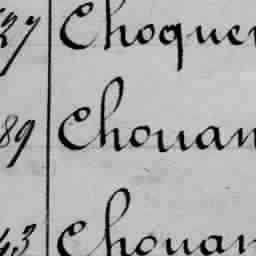 27 Choquer
89 Chouan
43 Chouan